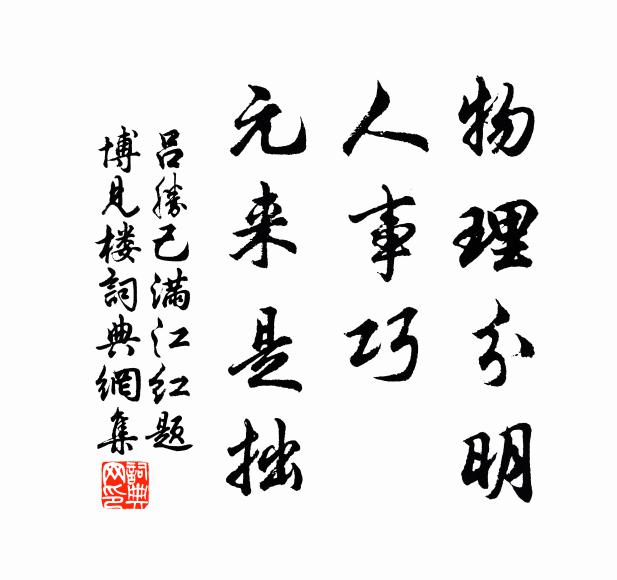 物理分明
人事巧
元来是拙
吕勝己满江红题
博见楼詞典網集
詞典网印